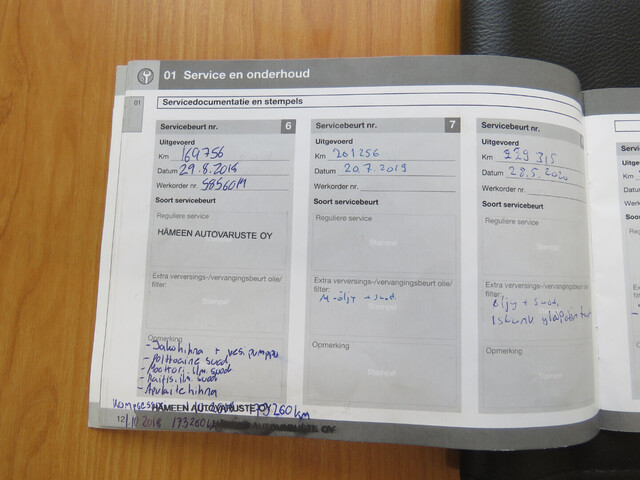 01 Service en onderhoud
01
Servicedocumentatie en stempels
Servicebeurt nr. 6
Uitgevoerd
Km 169756
Datum 29.8.2018
Werkorder nr.
Soort servicebeurt
Reguliere service
HÄMEEN AUTOVARUSTE OY
Extra verversings-/vervangingsbeurt olie/
filter:
Stempel
Opmerking
- Jakohihna + vesipumppu
- Polttoaine suod.
- Moottori.ilm. suod
- Raitis.ilm. suod
- Apulaitehihna
HÄMEEN AUTOVARUSTE OY 173260km
12.10.2018 173260
HÄMEEN AUTOVARUSTE OY
Servicebeurt nr. 7
Uitgevoerd
Km 201256
Datum 20.7.2019
Werkorder nr.
Soort servicebeurt
Reguliere service
Stempel
Extra verversings-/vervangingsbeurt olie/
filter:
M-öljy + suod.
Stempel
Opmerking
Stempel
Servicebeurt nr.
Uitgevoerd
Km 229315
Datum 28.5.2020
Werkorder nr.
Soort servicebeurt
Reguliere service
Stempel
Extra verversings-/vervangingsbeurt
filter:
öljy + suod.
Opmerking
Stempel
Servic
Uitgev
Km
Datum
Werko
Soort
Regul
Extra
filter:
Opme